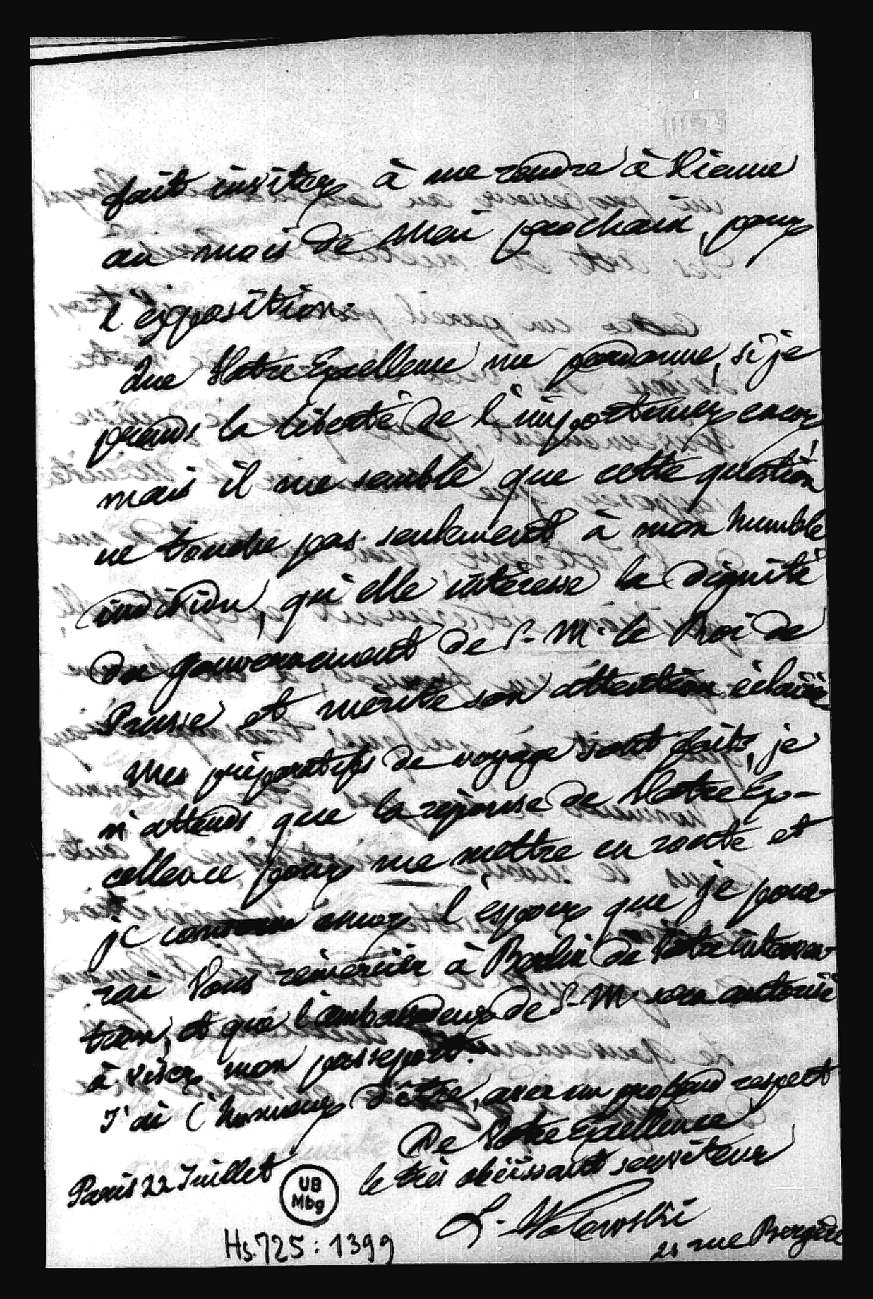 fait inviter à me rendre à Vienne
au mois de Mai prochain, pour
l'exposition.
Que Votre Excellence me pardonne, si je
prends la liberté de l'importuner encor
mais il me semble que cette question
ne touche pas seulement à mon humble
individu, qu'elle intéresse la dignité
du gouvernement de S. M. le Roi de
Prusse et mérite son attention éclairée
Mes préparatifs de voyage sont faits, je
n'attends que la réponse de Votre Ex-
cellence pour me mettre en route et
je encor l'espoir que je pour-
rai Vous remercier à Berlin de Votre interven-
tion, et que l'ambassadeur de S. M sera autorisé
à viser mon passeport.
J'ai l'honneur d'être, avec un profond respect
De Votre Excellence
le très obéissant serviteur
Paris 22 Juillet
L. Wolowski
rue Bergère
UB
Mbg
Hs. 725 : 1399